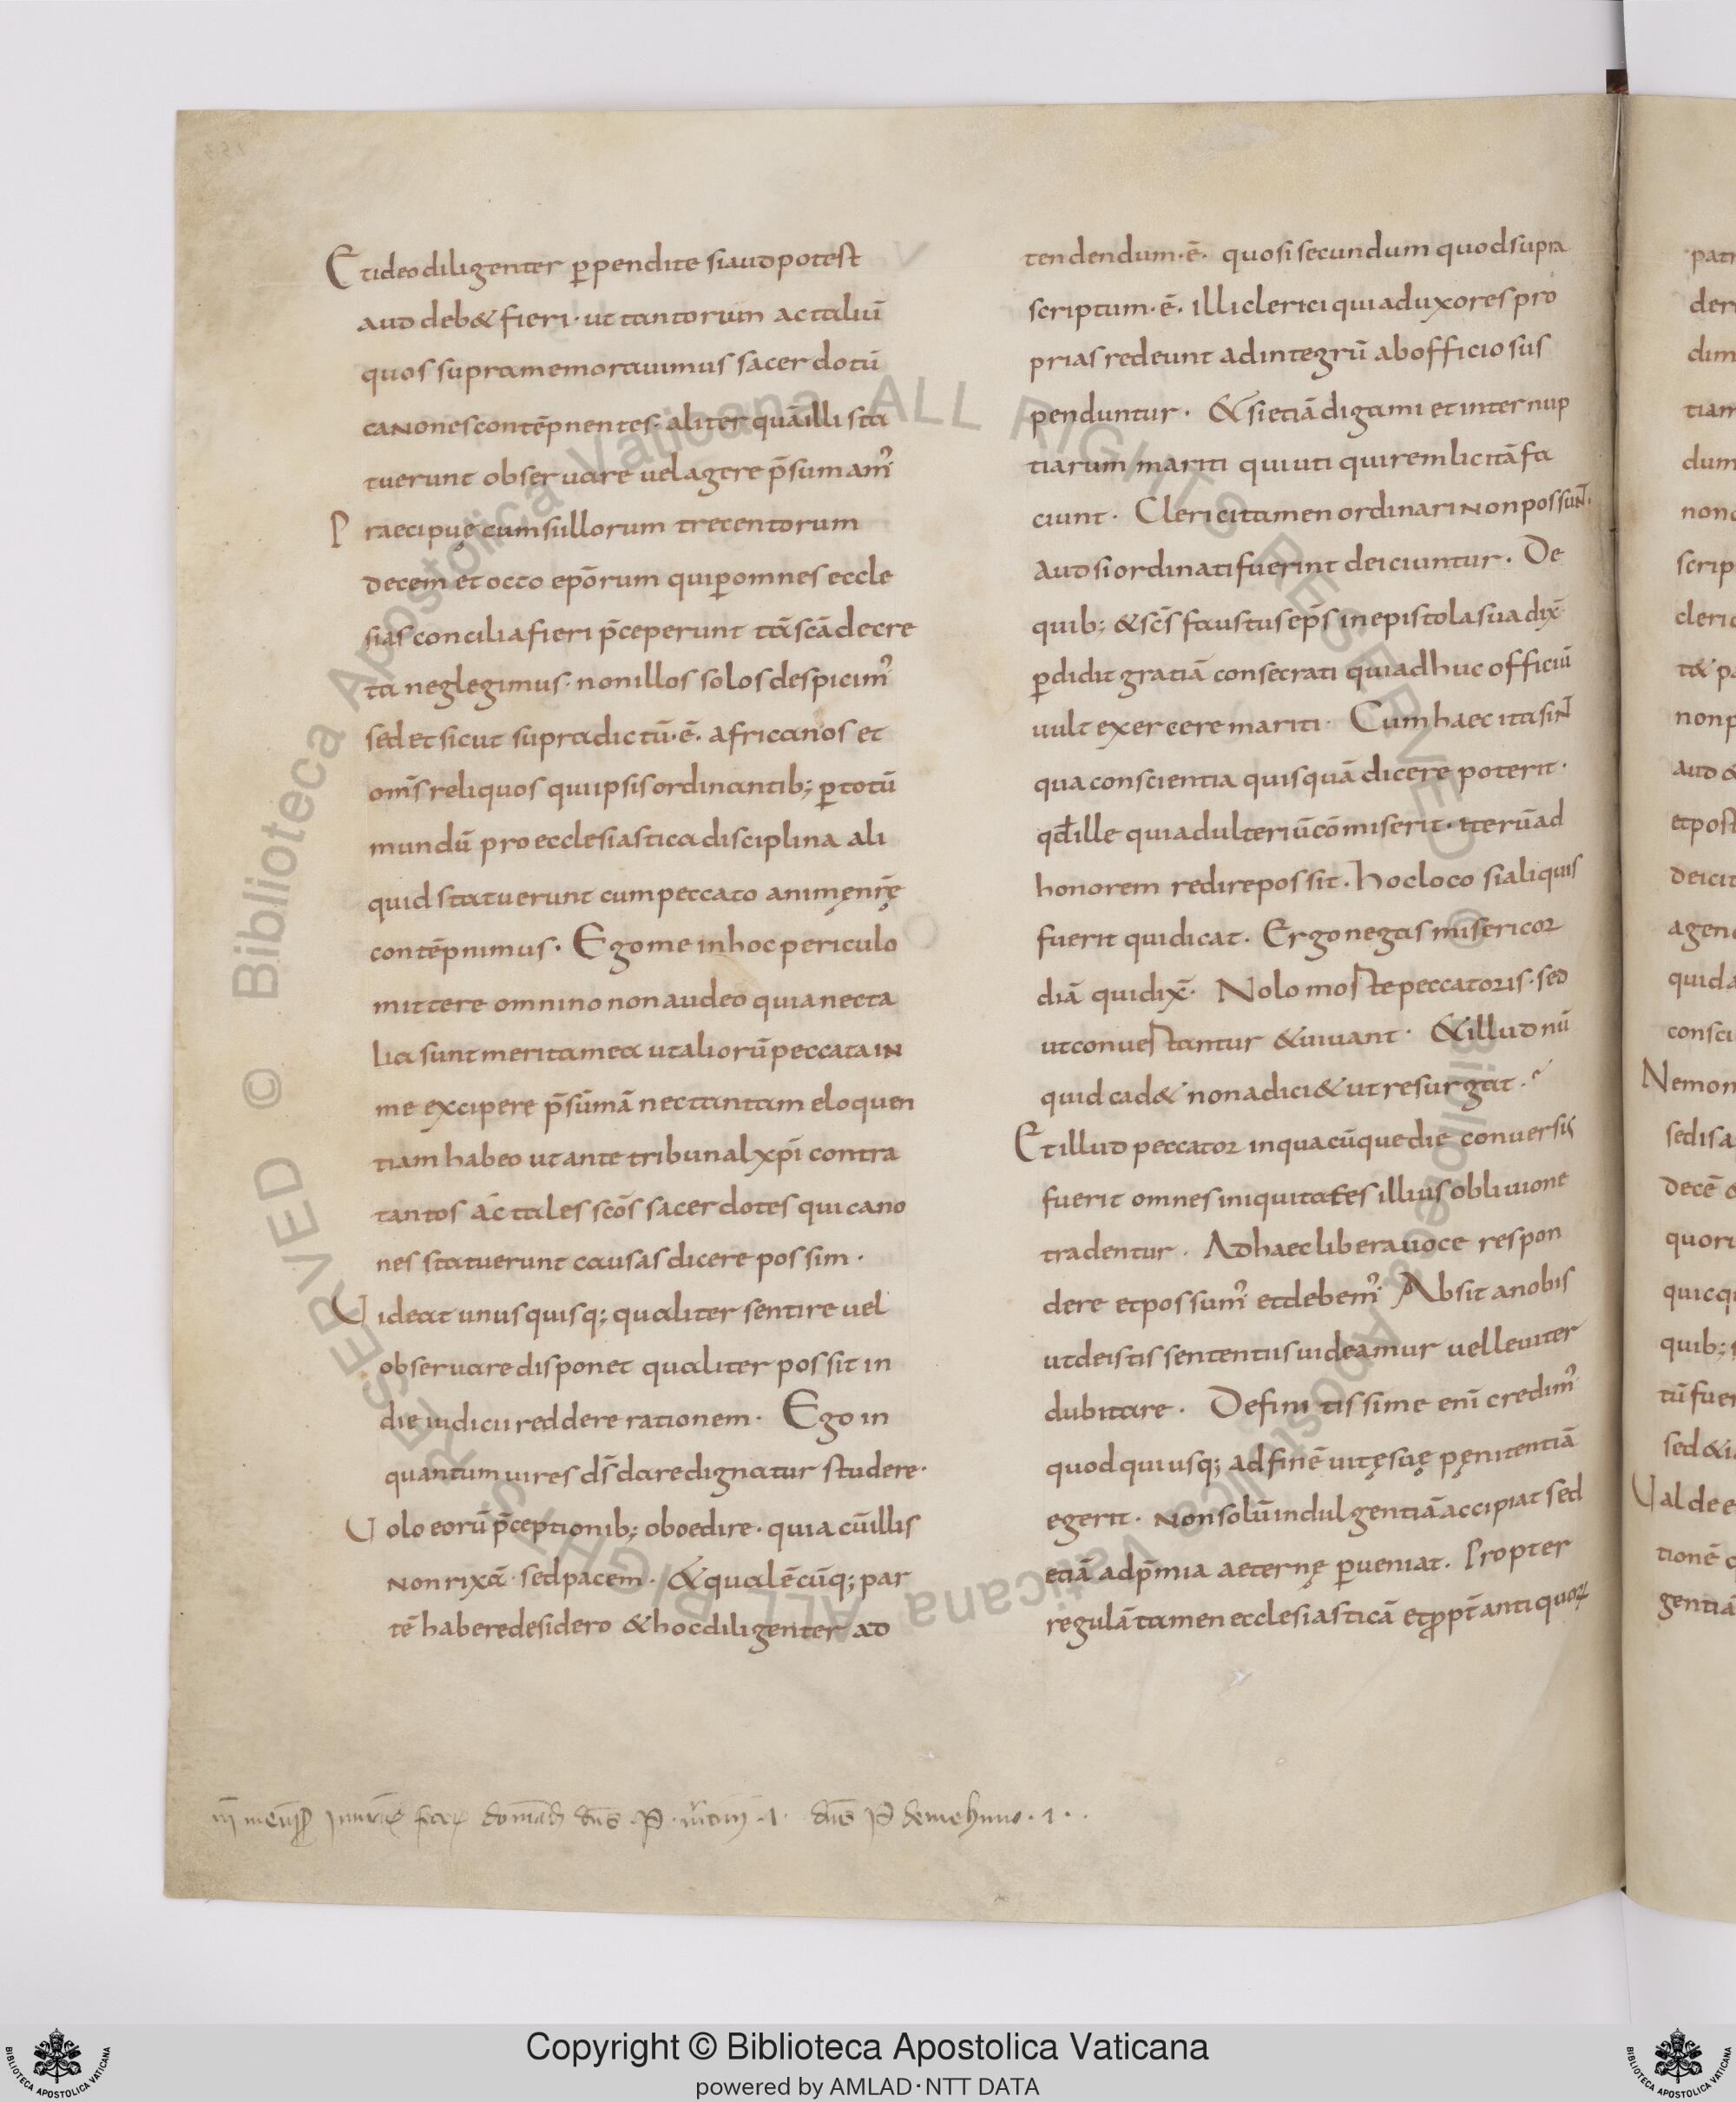 Et ideo diligenter p̱pendite si aut potest
aut deb& fieri · ut tantorum ac taliū
quos supra memorauimus sacerdotū
canones contēpnentes · aliter quā illi sta
tuerunt obseruare uel agere p̄sumam᾿
Praecipuę cum si illorum trecentorum
decem et octo epōrum qui p̱ omnes eccle
sias concilia fieri p̄ceperunt tā scā decre
ta neglegimus · non illos solos despicim᾿
sed et sicut supra dictū · ē · africanos et
om̄s reliquos qui ipsis ordinantib; p̱ totū
mundū pro ecclesiastica disciplina ali
quid statuerunt cum peccato animę nr̄ę
contēpnimus · Ego me in hoc periculo
mittere omnino non audeo quia nec ta
lia sunt merita mea ut aliorū peccata in
me excipere p̄sumā nec tantam eloquen
tiam habeo ut ante tribunal xp̄i contra
tantos ac tales scōs sacerdotes qui cano
nes statuerunt causas dicere possim ·
Uideat unusquisq; qualiter sentire uel
obseruare disponet qualiter possit in
die iudicii reddere rationem · Ego in
quantum uires ds̄ dare dignatur studere ·
Uolo eorū p̄ceptionib; oboedire · quia cū illis
non rixā · sed pacem · & qualēcūq; par
tē habere desidero & hoc diligenter ad
tendendum · ē · quo si secundum quod supra
scriptum · ē · illi clerici qui ad uxores pro
prias redeunt ad integrū ab officio sus
penduntur · & si etiā digami et internup
tiarum mariti qui uti qui rem licitā fa
ciunt · Clerici tamen ordinari non possunt ·
aut si ordinati fuerint deiciuntur · De
quib; & scs̄ faustus ep̄s in epistola sua dix̄
p̱didit gratiā consecrati qui adhuc officiū
uult exercere mariti · Cum haec ita sint
qua conscientia quisquā dicere poterit ·
qđ ille qui adulteriū cōmiserit · iterū ad
honorem redire possit · hoc loco si aliquis
fuerit qui dicat · Ergo negas misericor
diā qui dix̄ · Nolo morte peccatoris · sed
ut conuertantur & uiuant · & illud nū
quid cad& non adici& ut resurgat ·
Et illud peccator in quacūque die conuersus
fuerit omnes iniquitates illius obliuione
tradentur · Ad haec libera uoce respon
dere et possum᾿ et debem᾿ Absit a nobis
ut de istis sententiis uideamur uel leuiter
dubitare · Definitissime enī credim᾿
quod qui usq; ad finē uitę suę pęnitentiā
egerit · non solū indulgentiā accipiat sed
etiā ad p̄mia aeternę p̱ueniat · Propter
regulā tamen ecclesiasticā et ꝓpt̄ antiquoꝝ
Copyright © Biblioteca Apostolica Vaticana
powered by AMLAD·NTT DATA